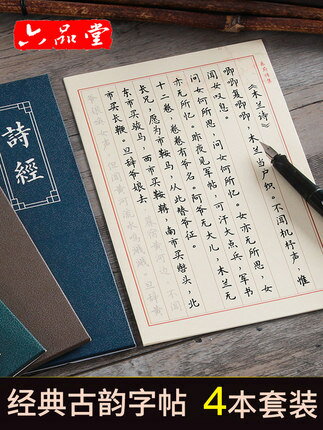 六品堂
詩經
《木兰诗》
唧唧复唧唧，木兰当户织。不闻机杼声，惟
闻女叹息。
问女何所思，问女何所忆。女亦无所思，女
亦无所忆。昨夜见军帖，可汗大点兵，军书
十二卷，卷卷有爷名。阿爷无大儿，木兰无
长兄，愿为市鞍马，从此替爷征。
东市买骏马，西市买鞍鞯，南市买辔头，北
市买长鞭。旦辞爷娘去
经典古韵字帖 4本套装